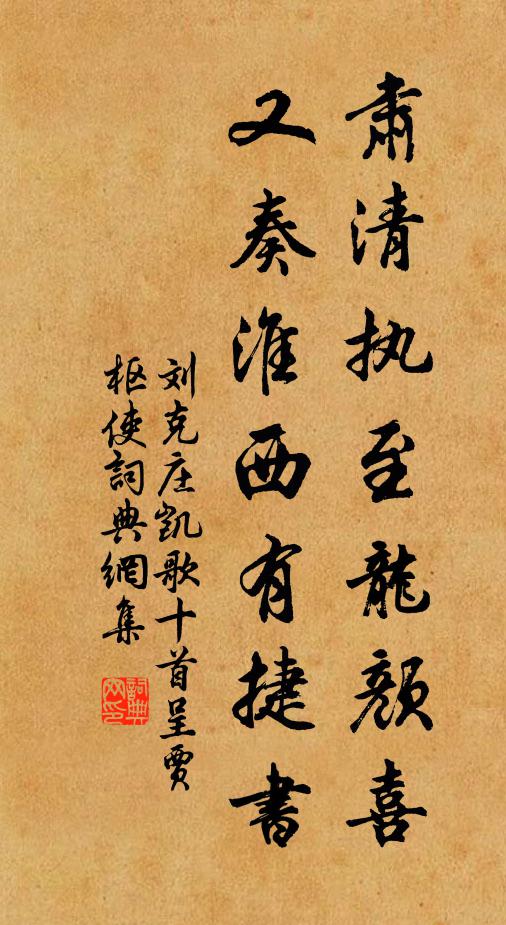 肃清执至龍顔喜
又奏淮西有捷書
刘克庄凯歌十首呈贾
枢使詞典網集
詞典
网印